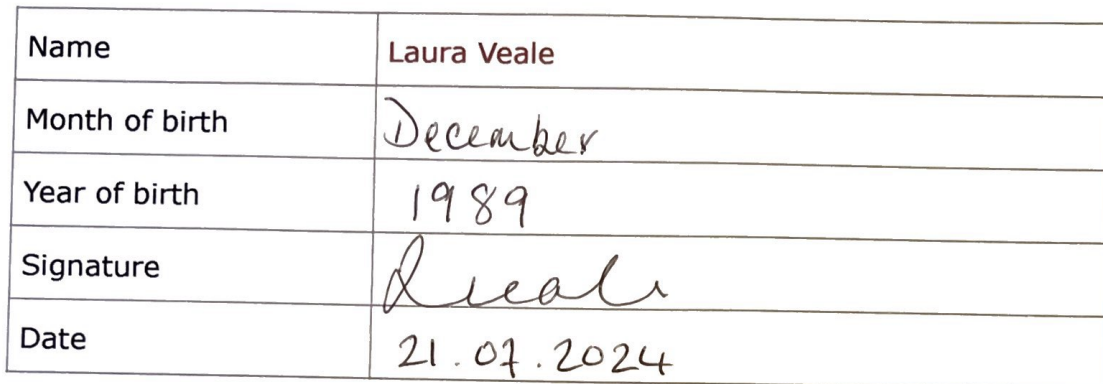 Name Laura Veale
Month of birth December
Year of birth 1989
Signature LVeale
Date 21.07.2024